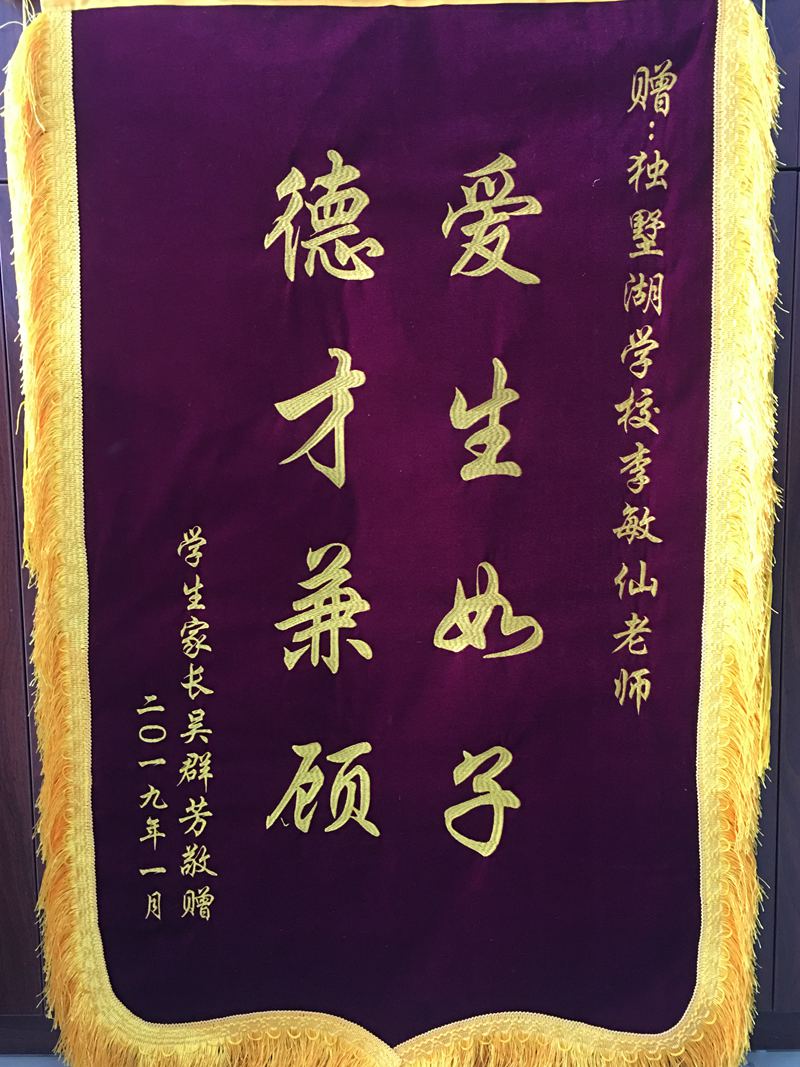 赠:独墅湖学校李敏仙老师
爱生如子
德才兼顾
学生家长吴群芳敬赠
二〇一九年一月